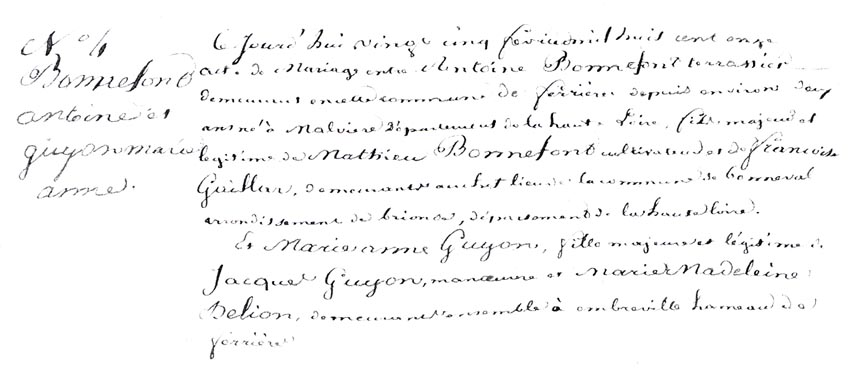 N.º 4
Bonnefond
antoine et
guyon marie
anne.
Ce Jourd'hui vingt cinq février mil huit cent onze
acte de Mariage entre Antoine Bonnefont terrassier
demeurant en cette commune de ferrière depuis environ deux
ans né à Malvière département de la haute Loire, fils majeur et
légitime de Mathieu Bonnefont cultivateur et de françoise
Guillar, demeurants au chef lieu de la commune de bonneval
arrondissement de brioude, département de la haute loire.
Et Marie anne Guyon, fille majeure et légitime de
Jacques Guyon, manœuvre et Marie Madeleine
Belion, demeurant ensemble à ombreville hameau de
ferrière